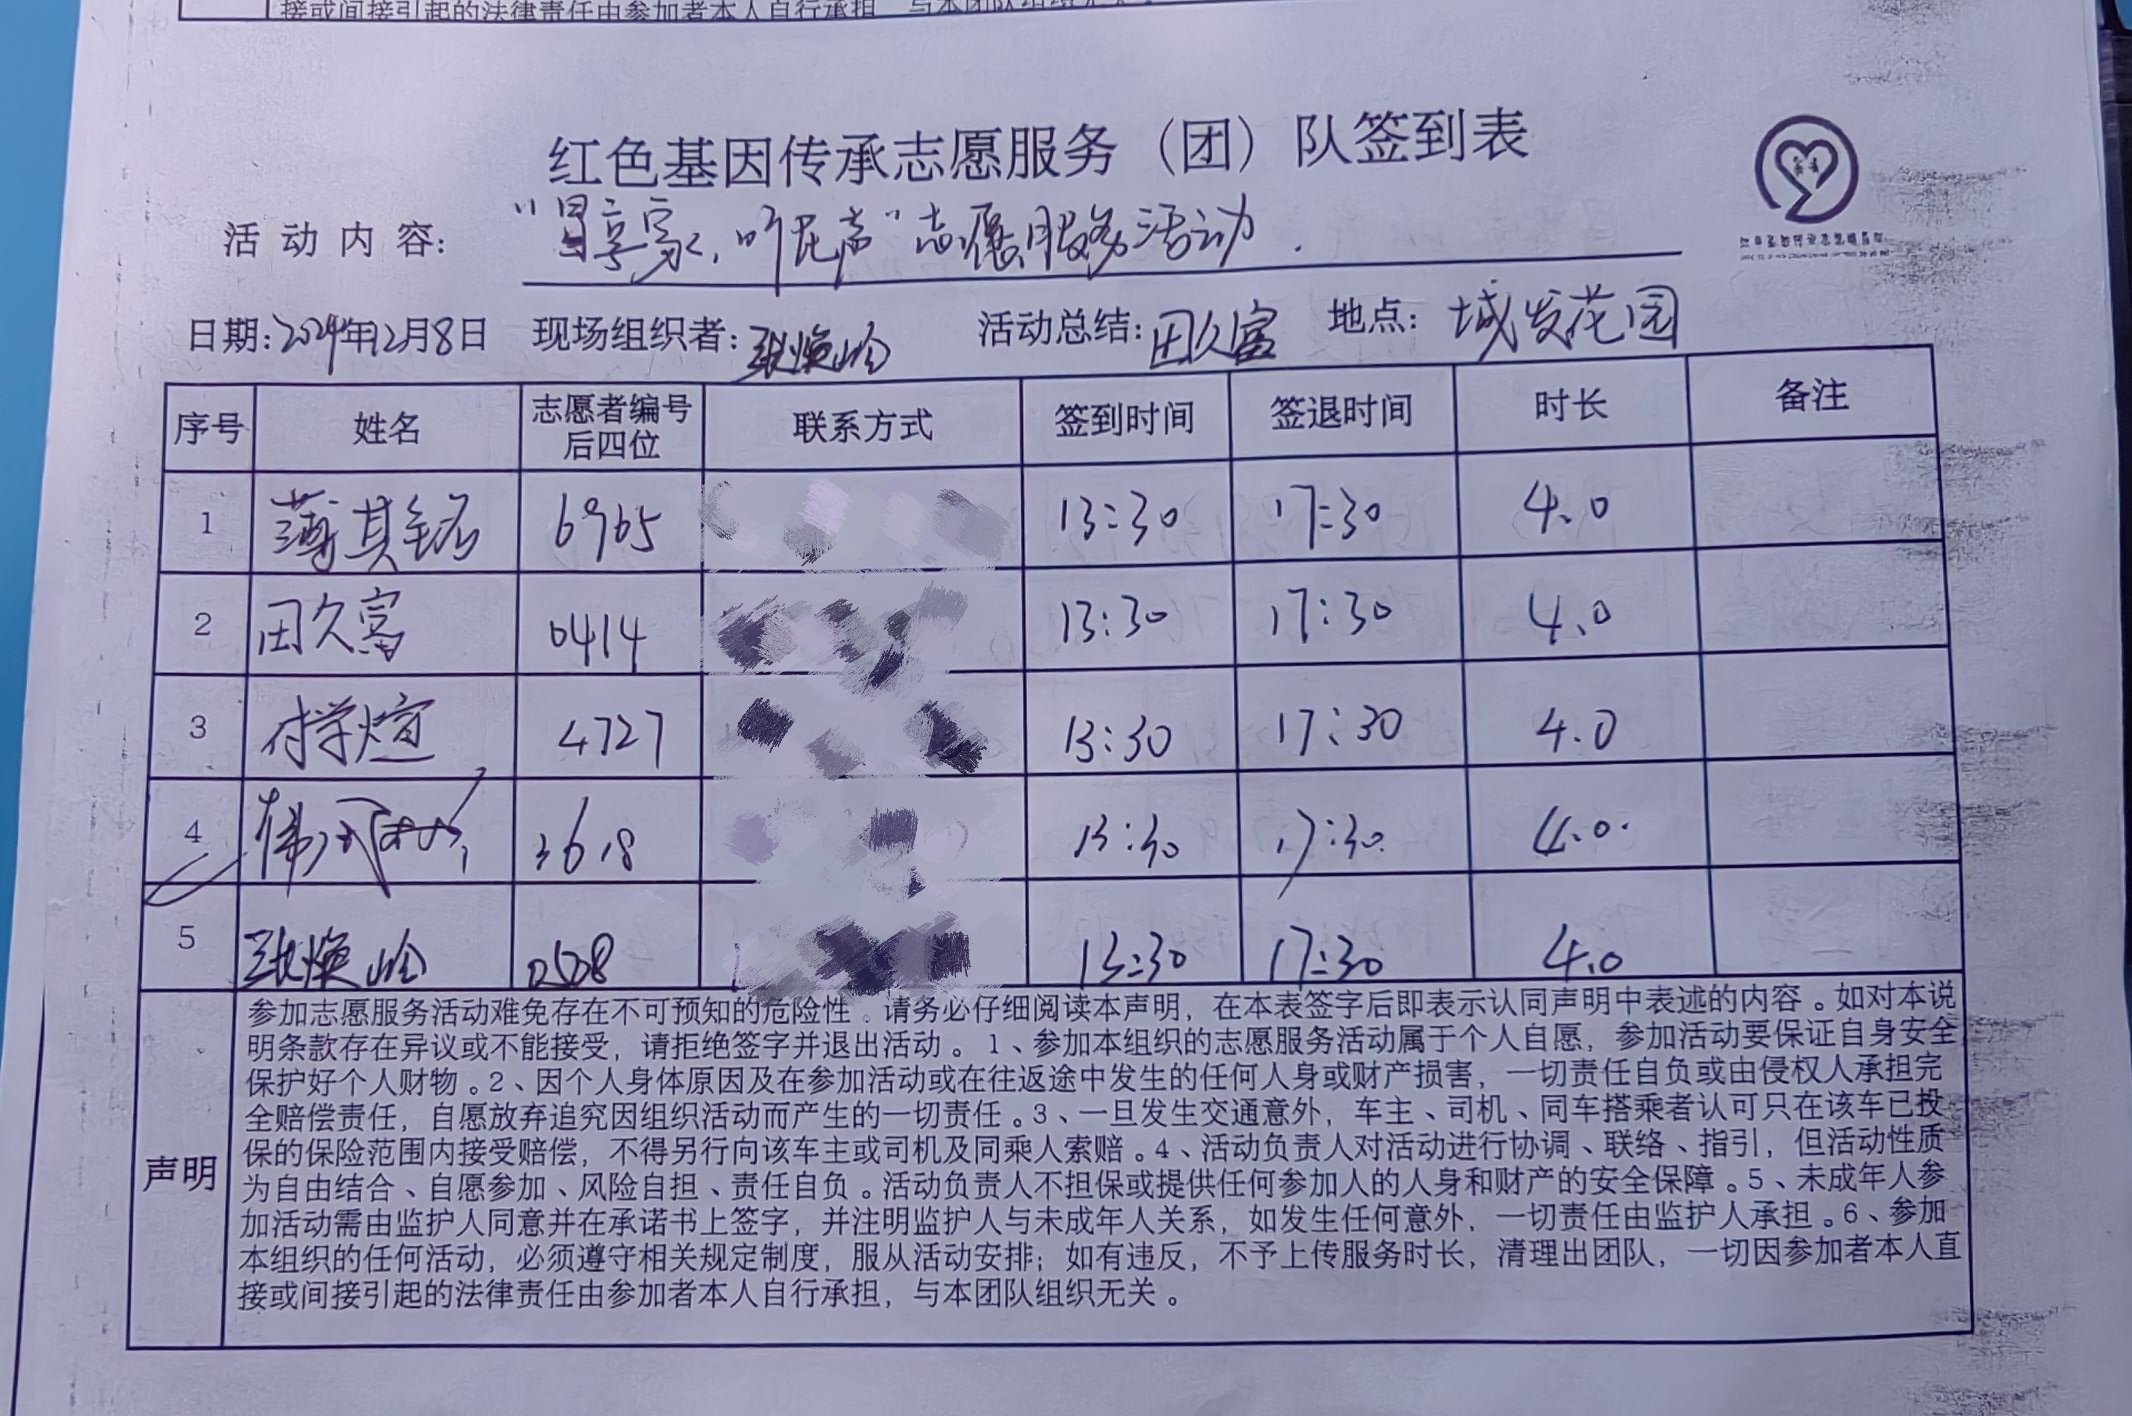 接或间接引起的法律责任由参加者本人自行承担，与本团队组织无关。
红色基因传承志愿服务（团）队签到表
活动内容：“冒享家，听民声”志愿服务活动.
日期：2024年12月8日 现场组织者：张焕岭 活动总结：田久富 地点：城发花园
序号 姓名 志愿者编号后四位 联系方式 签到时间 签退时间 时长 备注
1 薄其铭 6965 13:30 17:30 4.0
2 田久富 0414 13:30 17:30 4.0
3 付学煊 4727 13:30 17:30 4.0
4 3618 13:30 17:30 4.0
5 张焕岭 0508 13:30 17:30 4.0
声明
参加志愿服务活动难免存在不可预知的危险性。请务必仔细阅读本声明，在本表签字后即表示认同声明中表述的内容。如对本说
明条款存在异议或不能接受，请拒绝签字并退出活动。1、参加本组织的志愿服务活动属于个人自愿，参加活动要保证自身安全
保护好个人财物。2、因个人身体原因及在参加活动或在往返途中发生的任何人身或财产损害，一切责任自负或由侵权人承担完
全赔偿责任，自愿放弃追究因组织活动而产生的一切责任。3、一旦发生交通意外，车主、司机、同车搭乘者认可只在该车已投
保的保险范围内接受赔偿，不得另行向该车主或司机及同乘人索赔。4、活动负责人对活动进行协调、联络、指引，但活动性质
为自由结合、自愿参加、风险自担、责任自负。活动负责人不担保或提供任何参加人的人身和财产的安全保障。5、未成年人参
加活动需由监护人同意并在承诺书上签字，并注明监护人与未成年人关系，如发生任何意外，一切责任由监护人承担。6、参加
本组织的任何活动，必须遵守相关规定制度，服从活动安排；如有违反，不予上传服务时长，清理出团队，一切因参加者本人直
接或间接引起的法律责任由参加者本人自行承担，与本团队组织无关。